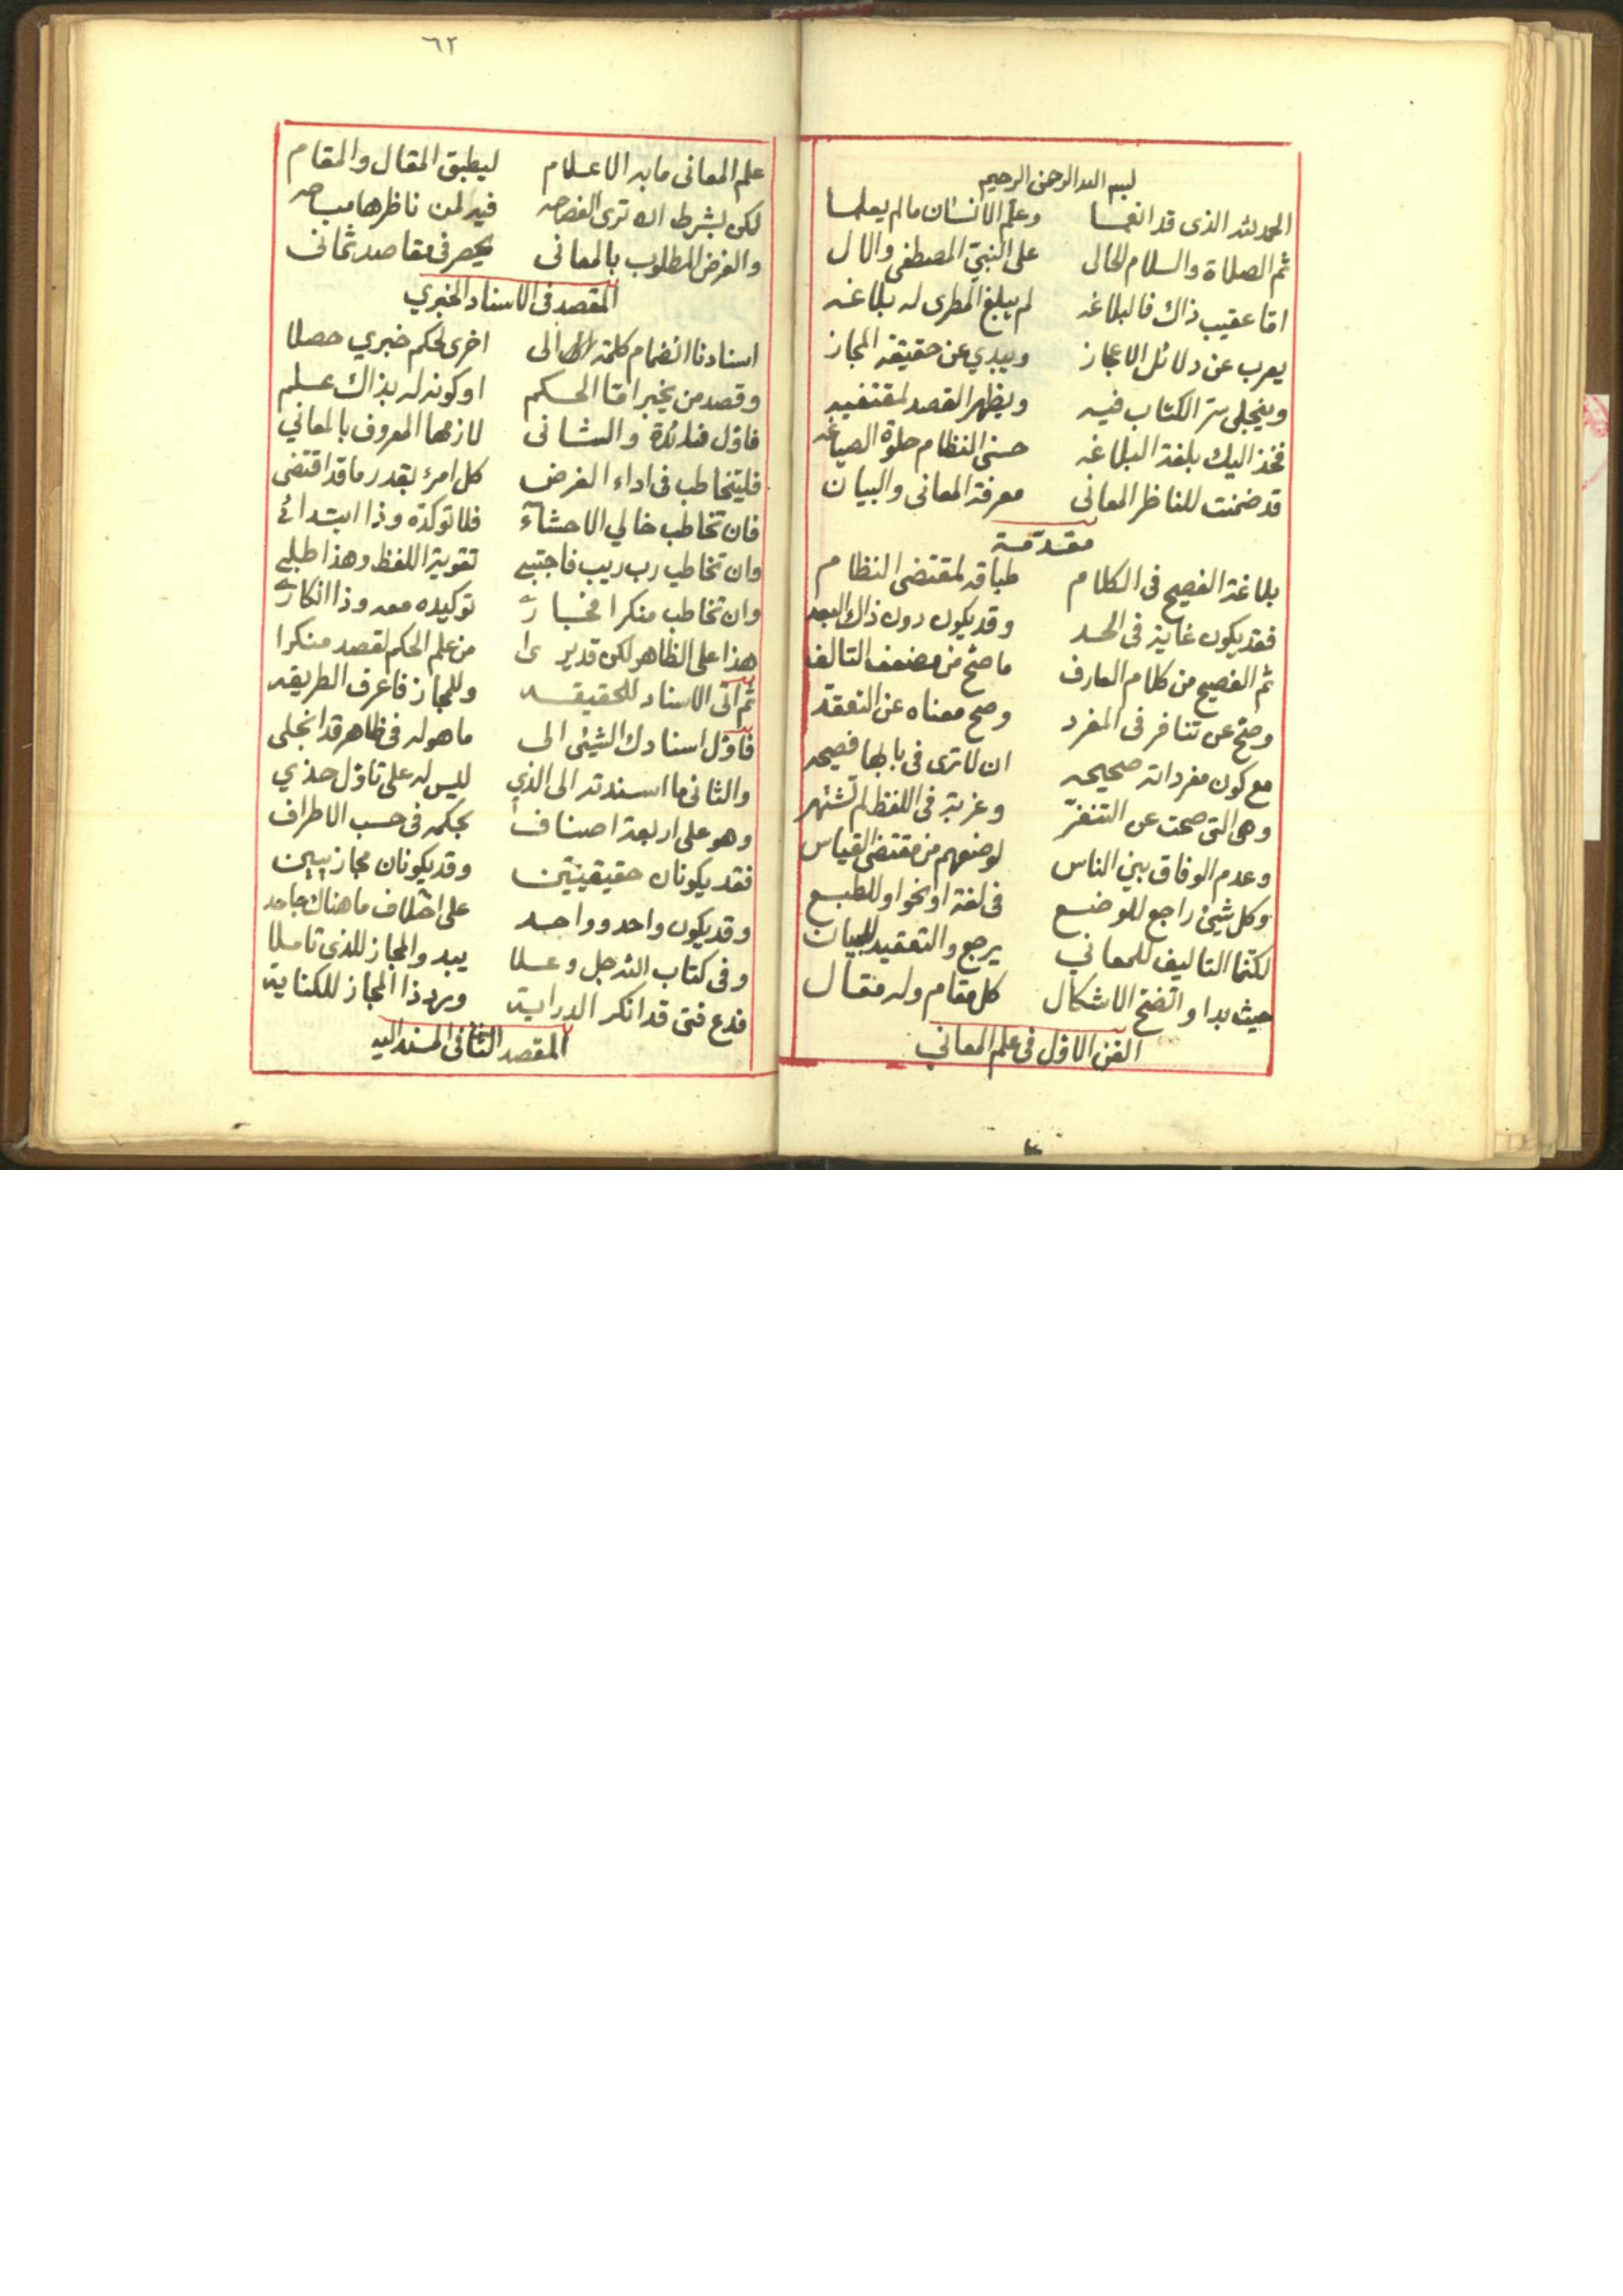 بسم الله الرحمن الرحيم
الحمد لله الذى قد انعما وعلم الانسان مالم يعلما
ثم الصلاة والسلام الحالى على النبىّ المصطفى والال
امّا عقيب ذاك فالبلاغه لم يبلغ المطرى له بلاغه
يعرب عن دلائل الاعجاز ويبدي عن حقيقة المجاز
وينجلى سرّ الكتاب فيه ويظهر القصد لمقتفيه
فخذ اليك بلغة البلاغه حسنى النظام حلوة الصياغه
قد ضمنت للناظر المعانى معرفة المعانى والبيان
مقدّمة
بلاغة الفصيح فى الكلام طباقه لمقتضى النظام
فقد يكون غاية فى الحد وقد يكون دون ذاك البعد
ثم الفصيح من كلام العارف ما صحّ من مضعف التالف
وصحّ عن تنافر فى المفرد وصح معناه عن التعقّد
مع كون مفرداته صحيحه ان لا ترى فى بابها فصيحه
وهى التى صحت عن التنفّر وغربة فى اللفظ لم تشتهر
وعدم الوفاق بين الناس لوضعهم من مقتضى القياس
وكل شيئ راجع للوضع فى لغة او نحو او للطبع
لكنّما التاليف للمعاني يرجع والتعقيد للبيان
حيث بدا واتّضح الاشكال كل مقام وله مقال
الفن الاوّل فى علم المعاني
٦٢
علم المعانى ما به الاعلام ليطبق المقال والمقام
لكن بشرط ان ترى الفصاحه فيه لمن ناظرها مباحه
والغرض المطلوب بالمعانى يحصر فى مقاصد ثمانى
المقصد فى الاسناد الخبري
اسنادنا انضمام كلمة الى اخرى لحكم خبري حصلا
وقصد من يخبر امّا الحكم او كونه له بذاك علم
فاوّل فائدة والثانى لازمها المعروف بالمعاني
فليتخاطب فى اداء الغرض كل امرئ بقدر ما قد اقتضى
فان تخاطب خالي الاحشآء فلا توكده وذا ابتدائے
وان تخاطب رب ريب فاجتبي تقوية اللفظ وهذا طلبي
وان تخاطب منكرا فخبار توكيده معه وذا انكار
هذا على الظاهر لكن قد يرى من علم الحكم لقصد منكرا
ثم اتى الاسناد للحقيقه وللمجاز فاعرف الطريقه
فاوّل اسنادك الشيئى الى ما هو له فى ظاهر قد انجلى
والثانى ما اسندته الى الذي ليس له على تاوّل حذي
وهو على اربعة اصناف بحكمه فى حسب الاطراف
فقد يكونان حقيقيّتين وقد يكونان مجازيين
وقد يكون واحد وواحد على اختلاف ما هناك جاحد
وفى كتاب الله جل وعلا يبدو المجاز للذى تاملا
فدع فتى قد انكر الدراية ويرد ذا المجاز للكناية
المقصد الثانى فى المسند اليه